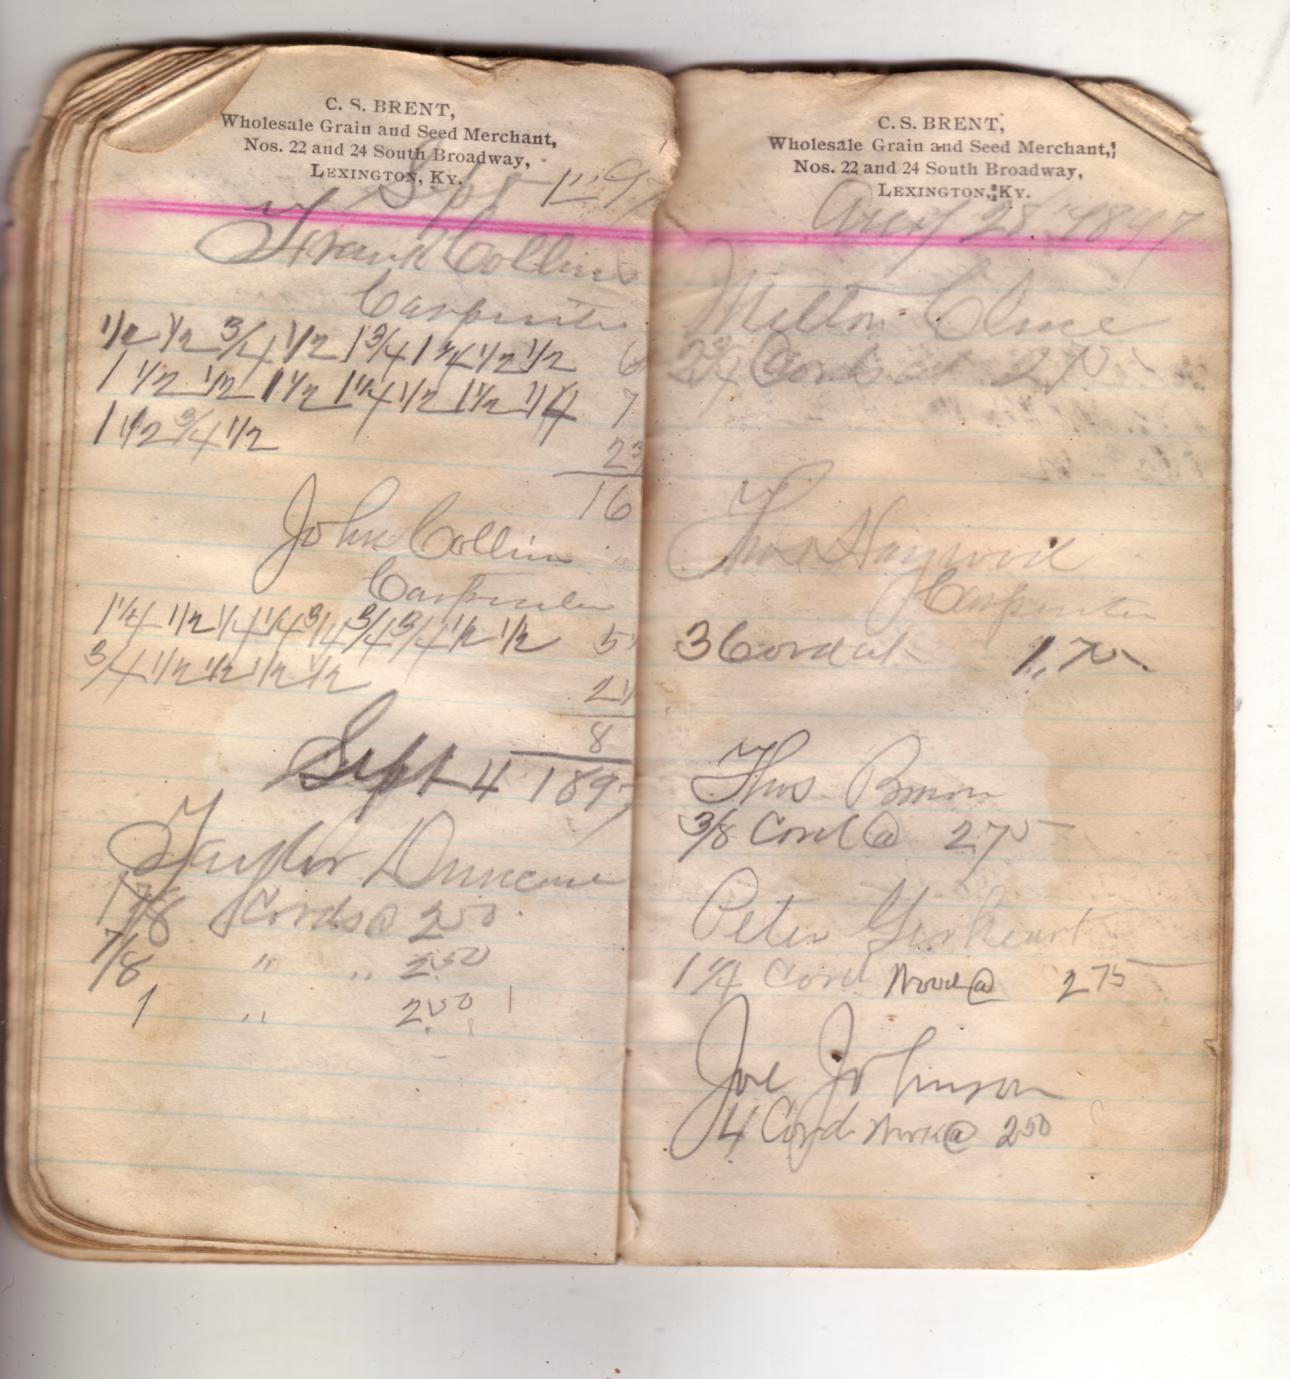 C. S. BRENT,
Wholesale Grain and Seed Merchant,
Nos. 22 and 24 South Broadway,
LEXINGTON, KY.
Sept 1st 97
Frank Collins
Carpenter
1/2 1/2 3/4 1/2 1 3/4 1 1/4 1/2 1/2 6
1 1/2 1/2 1 1/2 1 1/4 1/2 1 1/2 1/4 7
1 1/2 3/4 1/2
2 3/
16
John Collins
Carpenter
1 1/4 1/2 1/4 1/4 3/4 3/4 3/4 1/2 1/2 5
3/4 1/2 1/2 1/2 1/2
2 1/
8
Sept 4 1897
Taylor Duncan
1 7/8 Cords @ 2 50
7/8 " " 2.50
1 " 2.50
C. S. BRENT,
Wholesale Grain and Seed Merchant,
Nos. 22 and 24 South Broadway,
LEXINGTON, KY.
28 1897
Milton
2 3/4 Cords at 2 75
Thos Haywood
Carpenter
3 Cord at 1.75
Thos Brown
3/8 Cord @ 2 75
Peter
1 1/4 Cord Wood @ 2 75
Joe Johnson
4 Cord @ 2 50